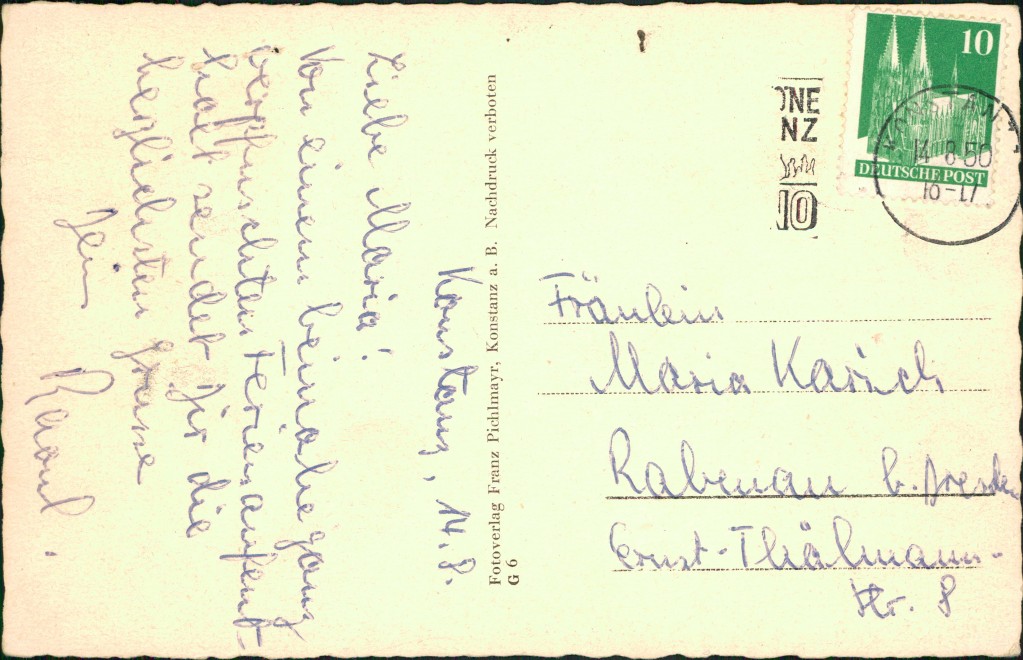 Konstanz, 14.8.
Liebe Maria!
Von einem beinahe ganz
verpfuschten Ferienaufent-
halt sendet Dir die
herzlichsten Grüsse
Dein
Raoul.
Fotoverlag Franz Pichlmayr, Konstanz a. B. Nachdruck verboten
G 6
10
DEUTSCHE POST
14-8-50
16-17
NE
NZ
Fräulein
Maria
Rabenau b. Dresden
Ernst-Thälmann-
Str. 8